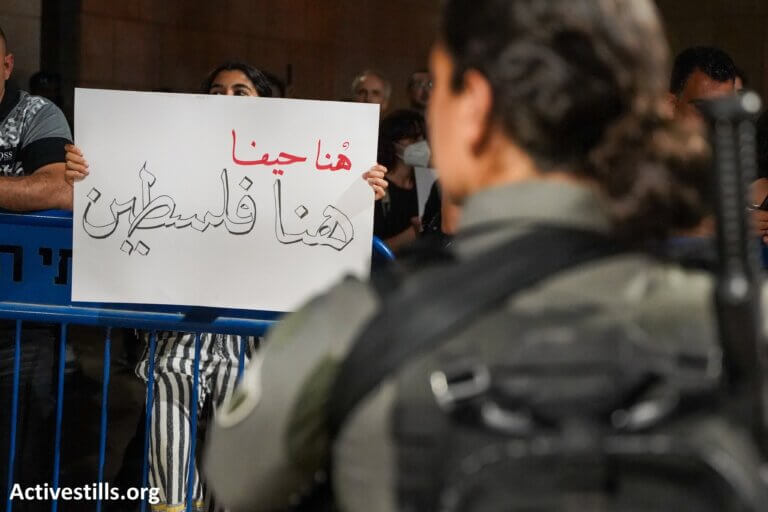 هُنا حيفا
هنا فلسطين
Activestills.org